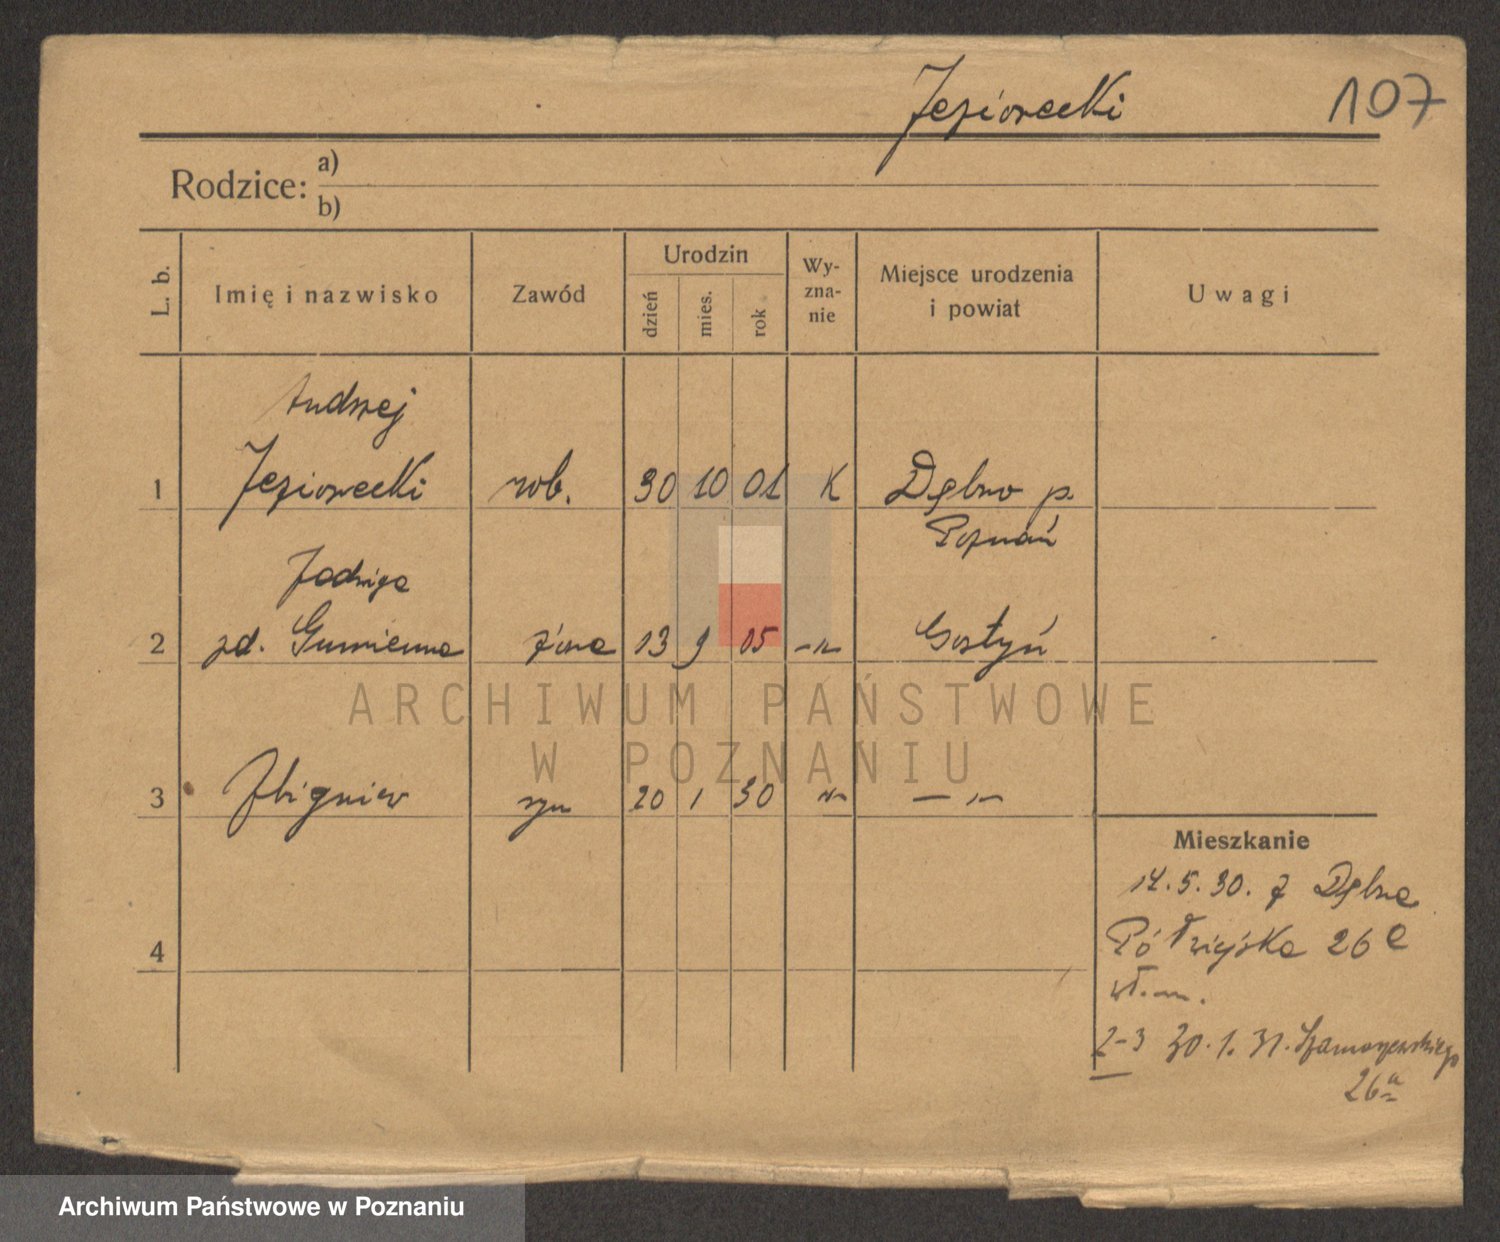 Jeziorecki 107
Rodzice: a)
b)
L. b. Imię i nazwisko Zawód Urodzin dzień mies. rok Wy-zna-nie Miejsce urodzenia i powiat Uwagi
Andrzej
1 Jeziorecki rob. 30 10 01 K Dębno p.
Poznań
Jadwiga
2 zd. Gumienna żona 13 9 05 -"- Gostyń
3 Zbigniew syn 20 1 30 -"- -"-
Mieszkanie
14.5.30. z Dębna
4 Półwiejska 26
wł. m.
2-3 30.1.31. Szamarzewskiego
26a
ARCHIWUM PAŃSTWOWE
W POZNANIU
Archiwum Państwowe w Poznaniu